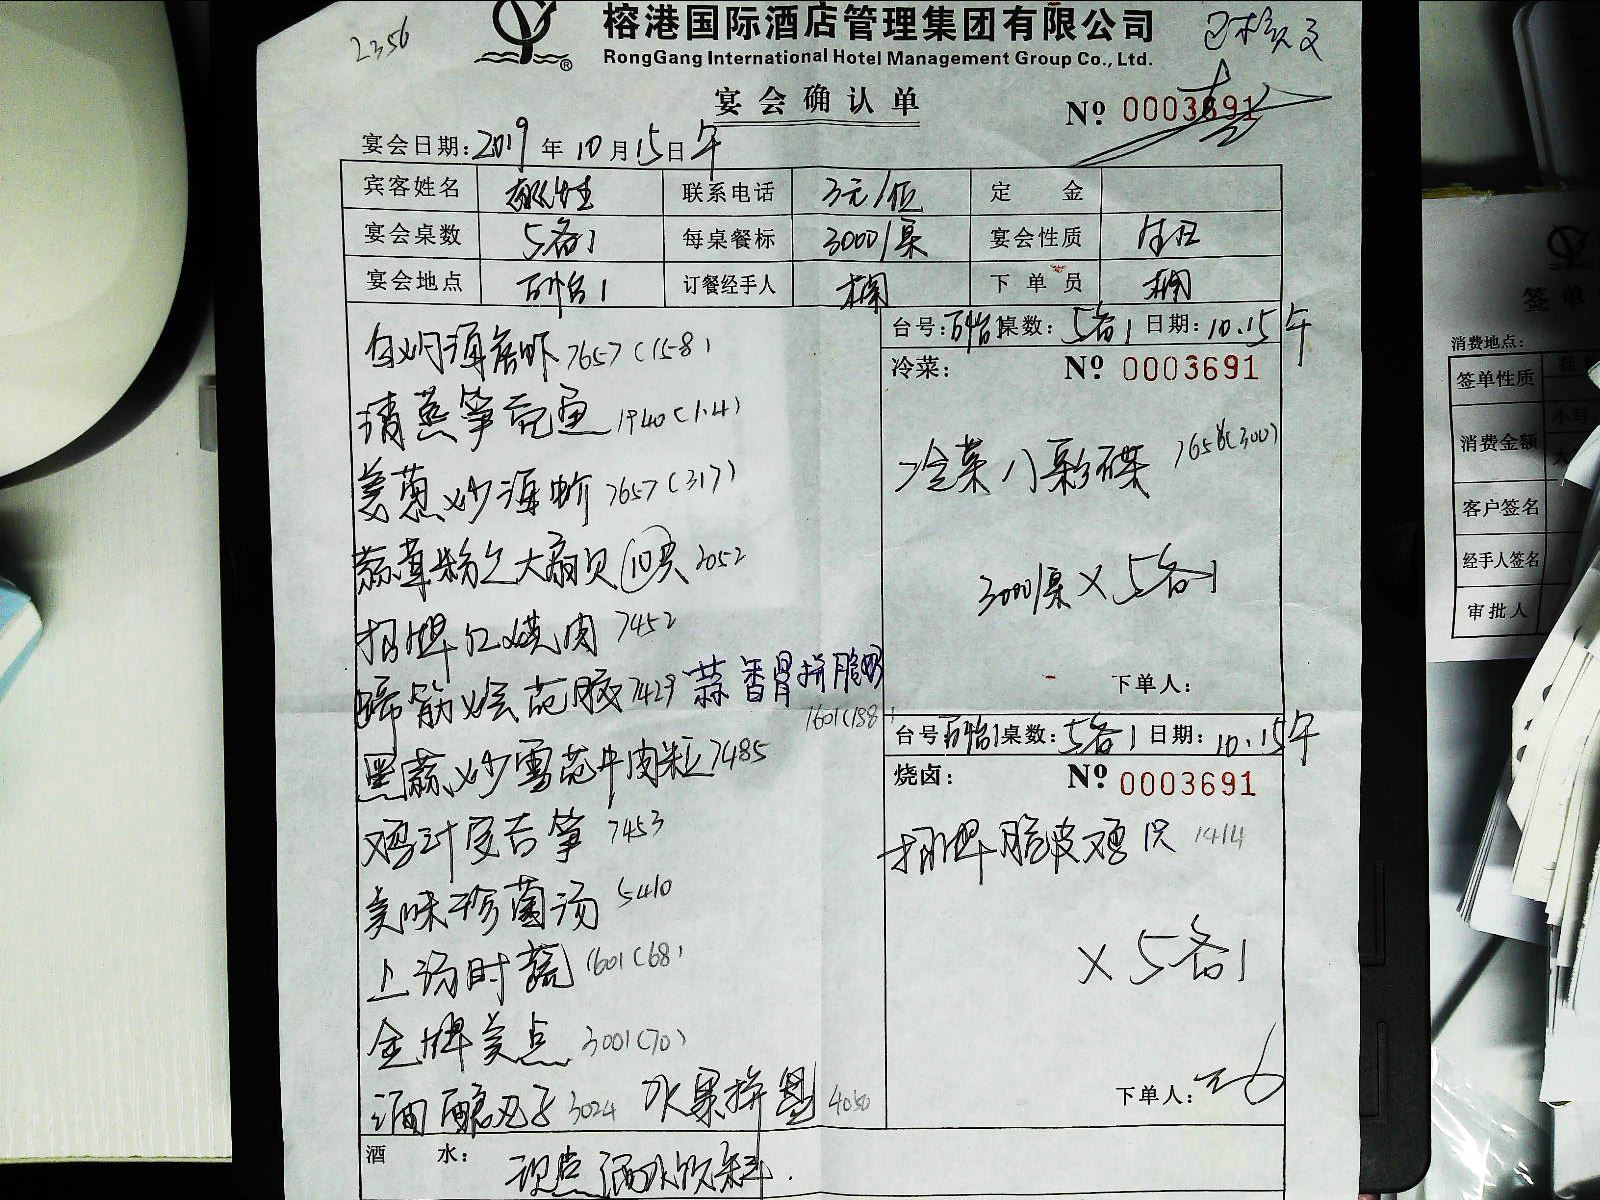 2356
榕港国际酒店管理集团有限公司
已核交
RongGang International Hotel Management Group Co., Ltd.
®
宴会确认单
Nº 0003691
宴会日期: 2019 年 10 月 15 日 午
宾客姓名 联系电话 3元/位 定 金
宴会桌数 5备1 每桌餐标 3000/桌 宴会性质 生日
宴会地点 订餐经手人 下单员
台号: 桌数: 5备1 日期: 10.15午
白灼海虾 7657(158)
冷菜: Nº 0003691
清蒸笋壳鱼 1940(1.4)
冷菜八彩碟 7658(300)
姜葱炒海蚧 7657(317)
蒜茸粉丝大扇贝 10只 2052
3000/桌×5备1
招牌红烧肉 7452
下单人:
蹄筋烩花胶 7429 蒜香骨拼脆
1601(188)
台号 桌数: 5备1 日期: 10.15午
黑蒜炒雪花牛肉粒 7485
烧卤: Nº 0003691
鸡汁安吉笋 7453
招牌脆皮鸡 1只 1414
美味珍菌汤 5410
×5备1
上汤时蔬 1601(68)
金牌美点 3001(70)
下单人:
酒酿丸子 3024 水果拼盘 4050
酒 水: 现点酒水饮料.
签单
消费地点:
签单性质
消费金额 小写
大
客户签名
经手人签名
审批人